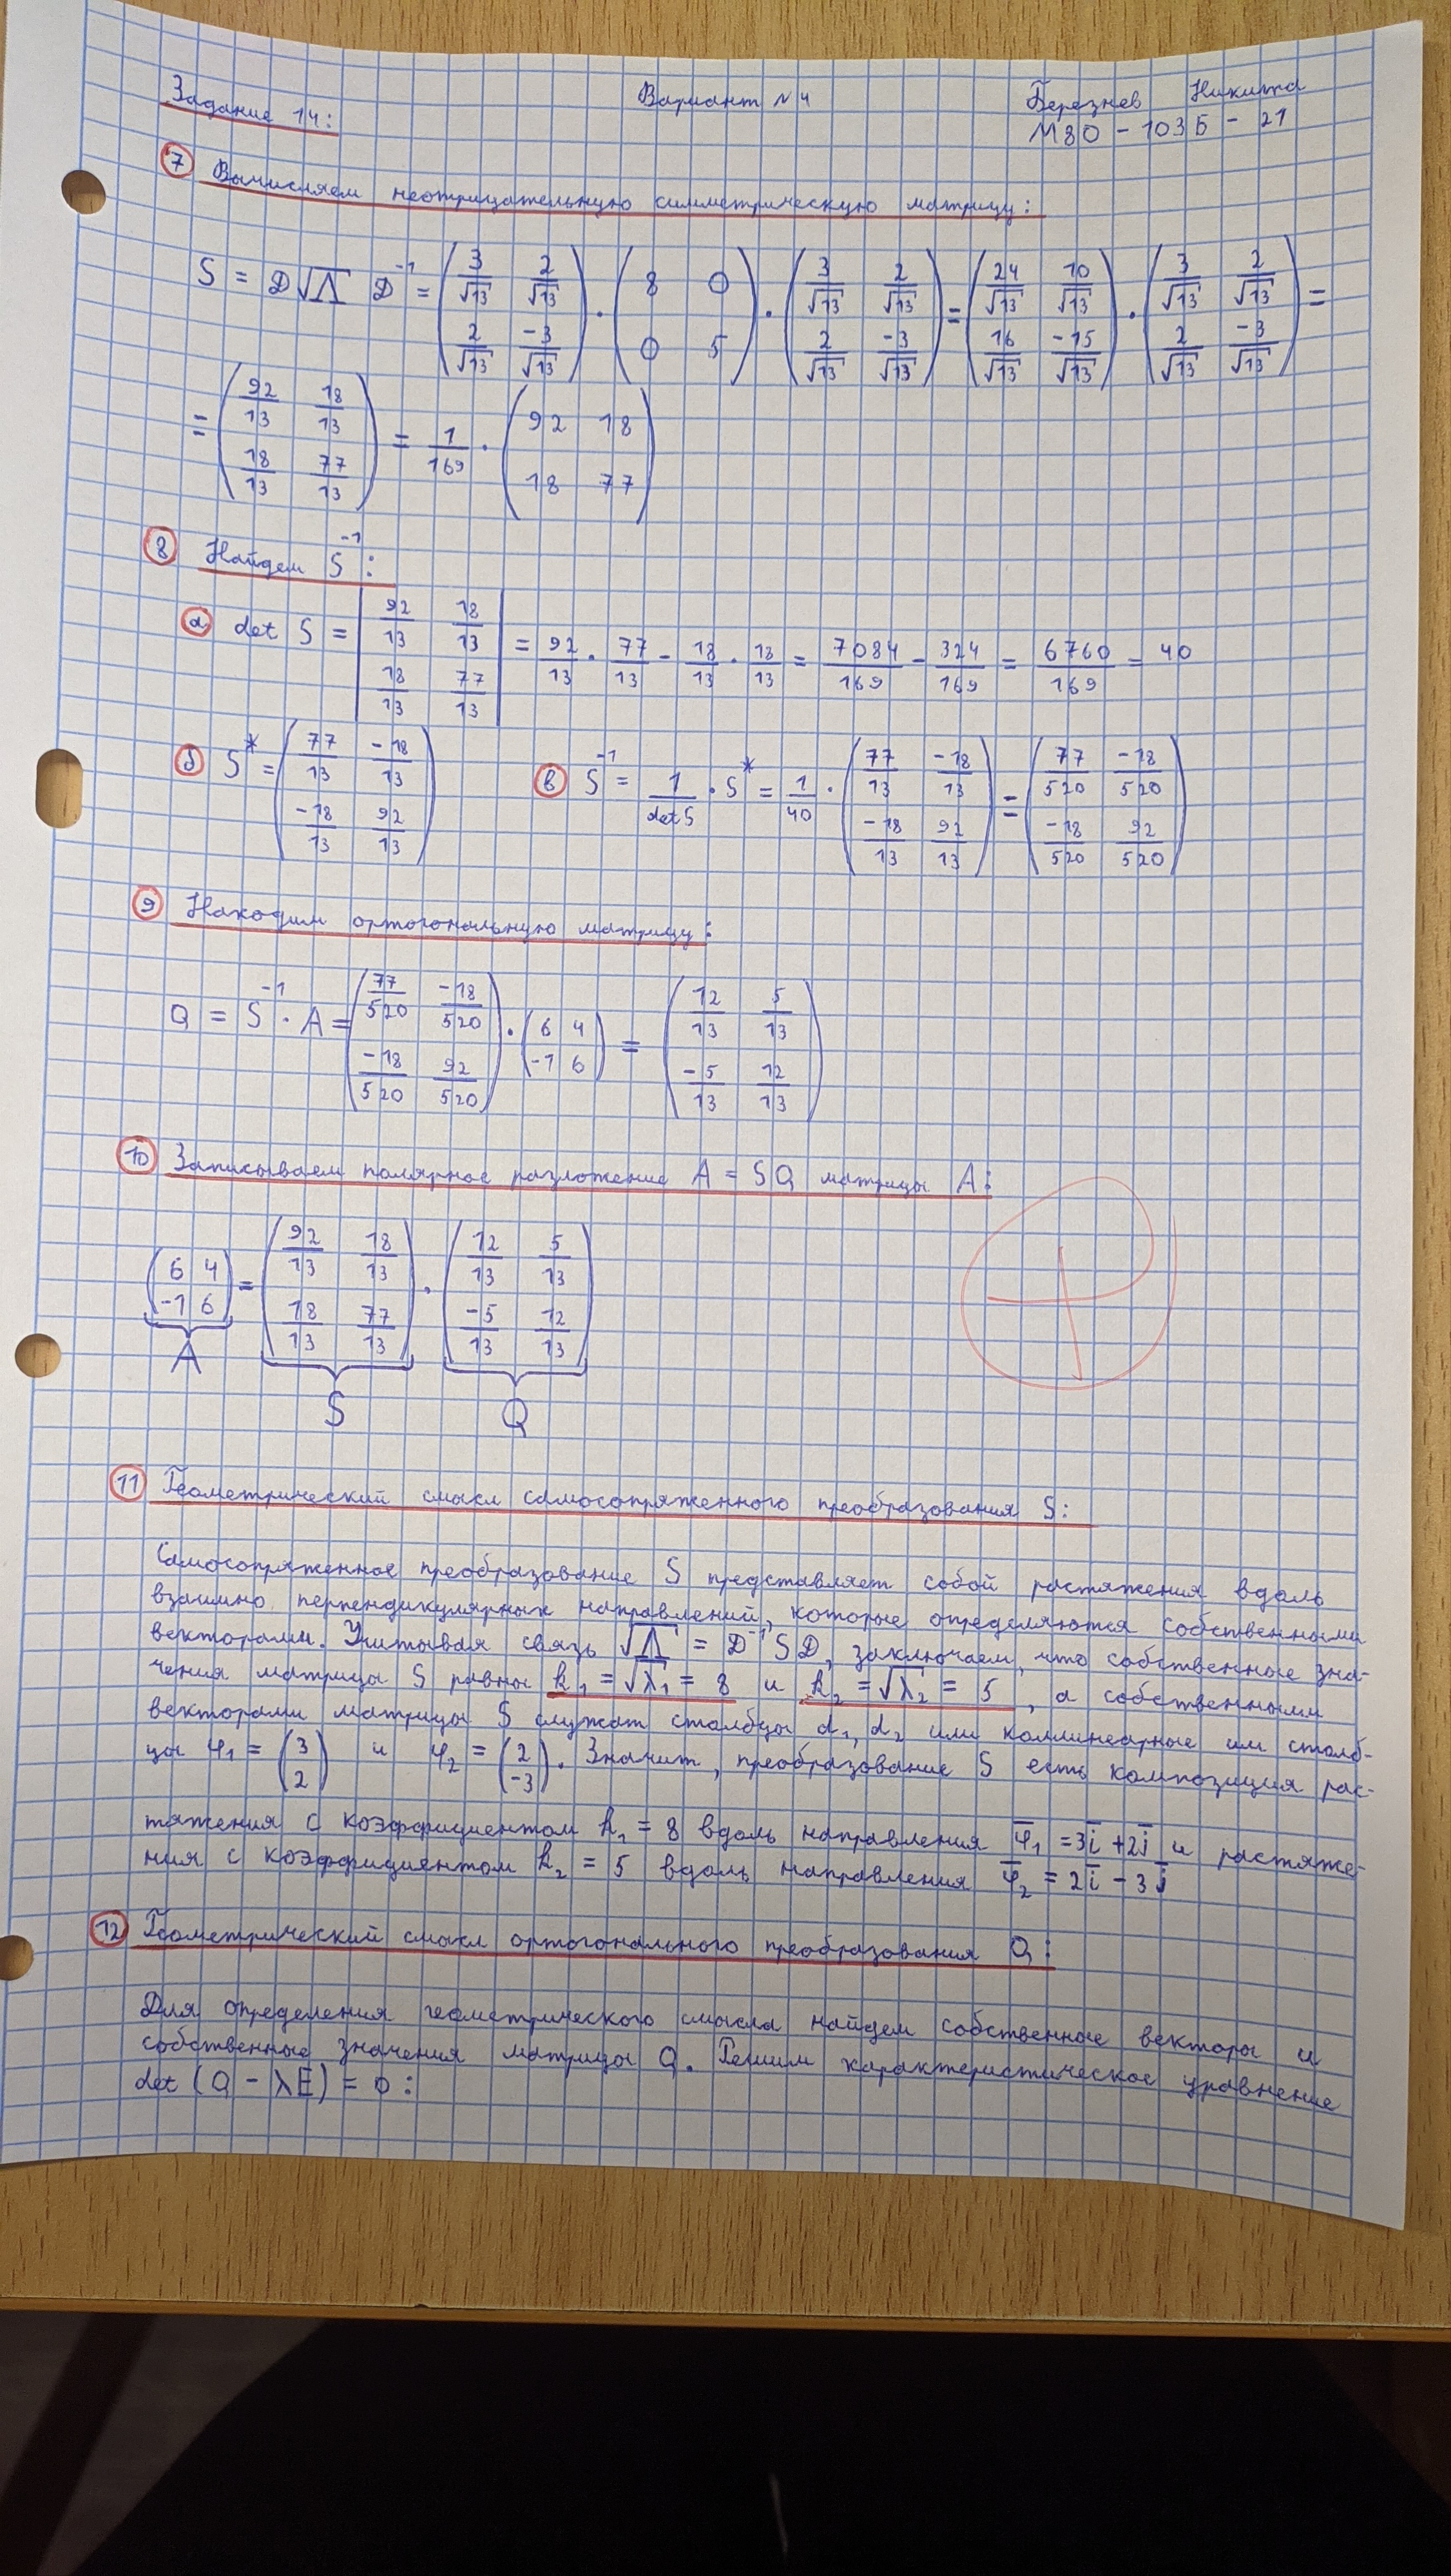 Задание 14: Вариант №4 Березнев Никита
М8О-103Б-21
7 Вычисляем неотрицательную симметрическую матрицу:
S = D√Λ D⁻¹ = (3/√13 2/√13; 2/√13 -3/√13) · (8 0; 0 5) · (3/√13 2/√13; 2/√13 -3/√13) = (24/√13 10/√13; 16/√13 -15/√13) · (3/√13 2/√13; 2/√13 -3/√13) =
= (92/13 18/13; 18/13 77/13) = 1/169 · (92 18; 18 77)
8 Найдем S⁻¹:
а det S = |92/13 18/13; 18/13 77/13| = 92/13 · 77/13 - 18/13 · 18/13 = 7084/169 - 324/169 = 6760/169 = 40
б S* = (77/13 -18/13; -18/13 92/13) в S⁻¹ = 1/det S · S* = 1/40 · (77/13 -18/13; -18/13 92/13) = (77/520 -18/520; -18/520 92/520)
9 Находим ортогональную матрицу:
Q = S⁻¹ · A = (77/520 -18/520; -18/520 92/520) · (6 4; -1 6) = (12/13 5/13; -5/13 12/13)
10 Записываем полярное разложение A = SQ матрицы A:
(6 4; -1 6) = (92/13 18/13; 18/13 77/13) · (12/13 5/13; -5/13 12/13)
A S Q
11 Геометрический смысл самосопряженного преобразования S:
Самосопряженное преобразование S представляет собой растяжения вдоль
взаимно перпендикулярных направлений, которые определяются собственными
векторами. Учитывая связь √Λ = D⁻¹SD, заключаем, что собственные зна-
чения матрицы S равны k₁ = √λ₁ = 8 и k₂ = √λ₂ = 5, а собственными
векторами матрицы S служат столбцы d₁, d₂ или коллинеарные им столб-
цы φ₁ = (3; 2) и φ₂ = (2; -3). Значит, преобразование S есть композиция рас-
тяжения с коэффициентом k₁ = 8 вдоль направления φ̅₁ = 3i̅ + 2j̅ и растяже-
ния с коэффициентом k₂ = 5 вдоль направления φ̅₂ = 2i̅ - 3j̅
12 Геометрический смысл ортогонального преобразования Q:
Для определения геометрического смысла найдем собственные векторы и
собственные значения матрицы Q. Решим характеристическое уравнение
det (Q - λE) = 0: